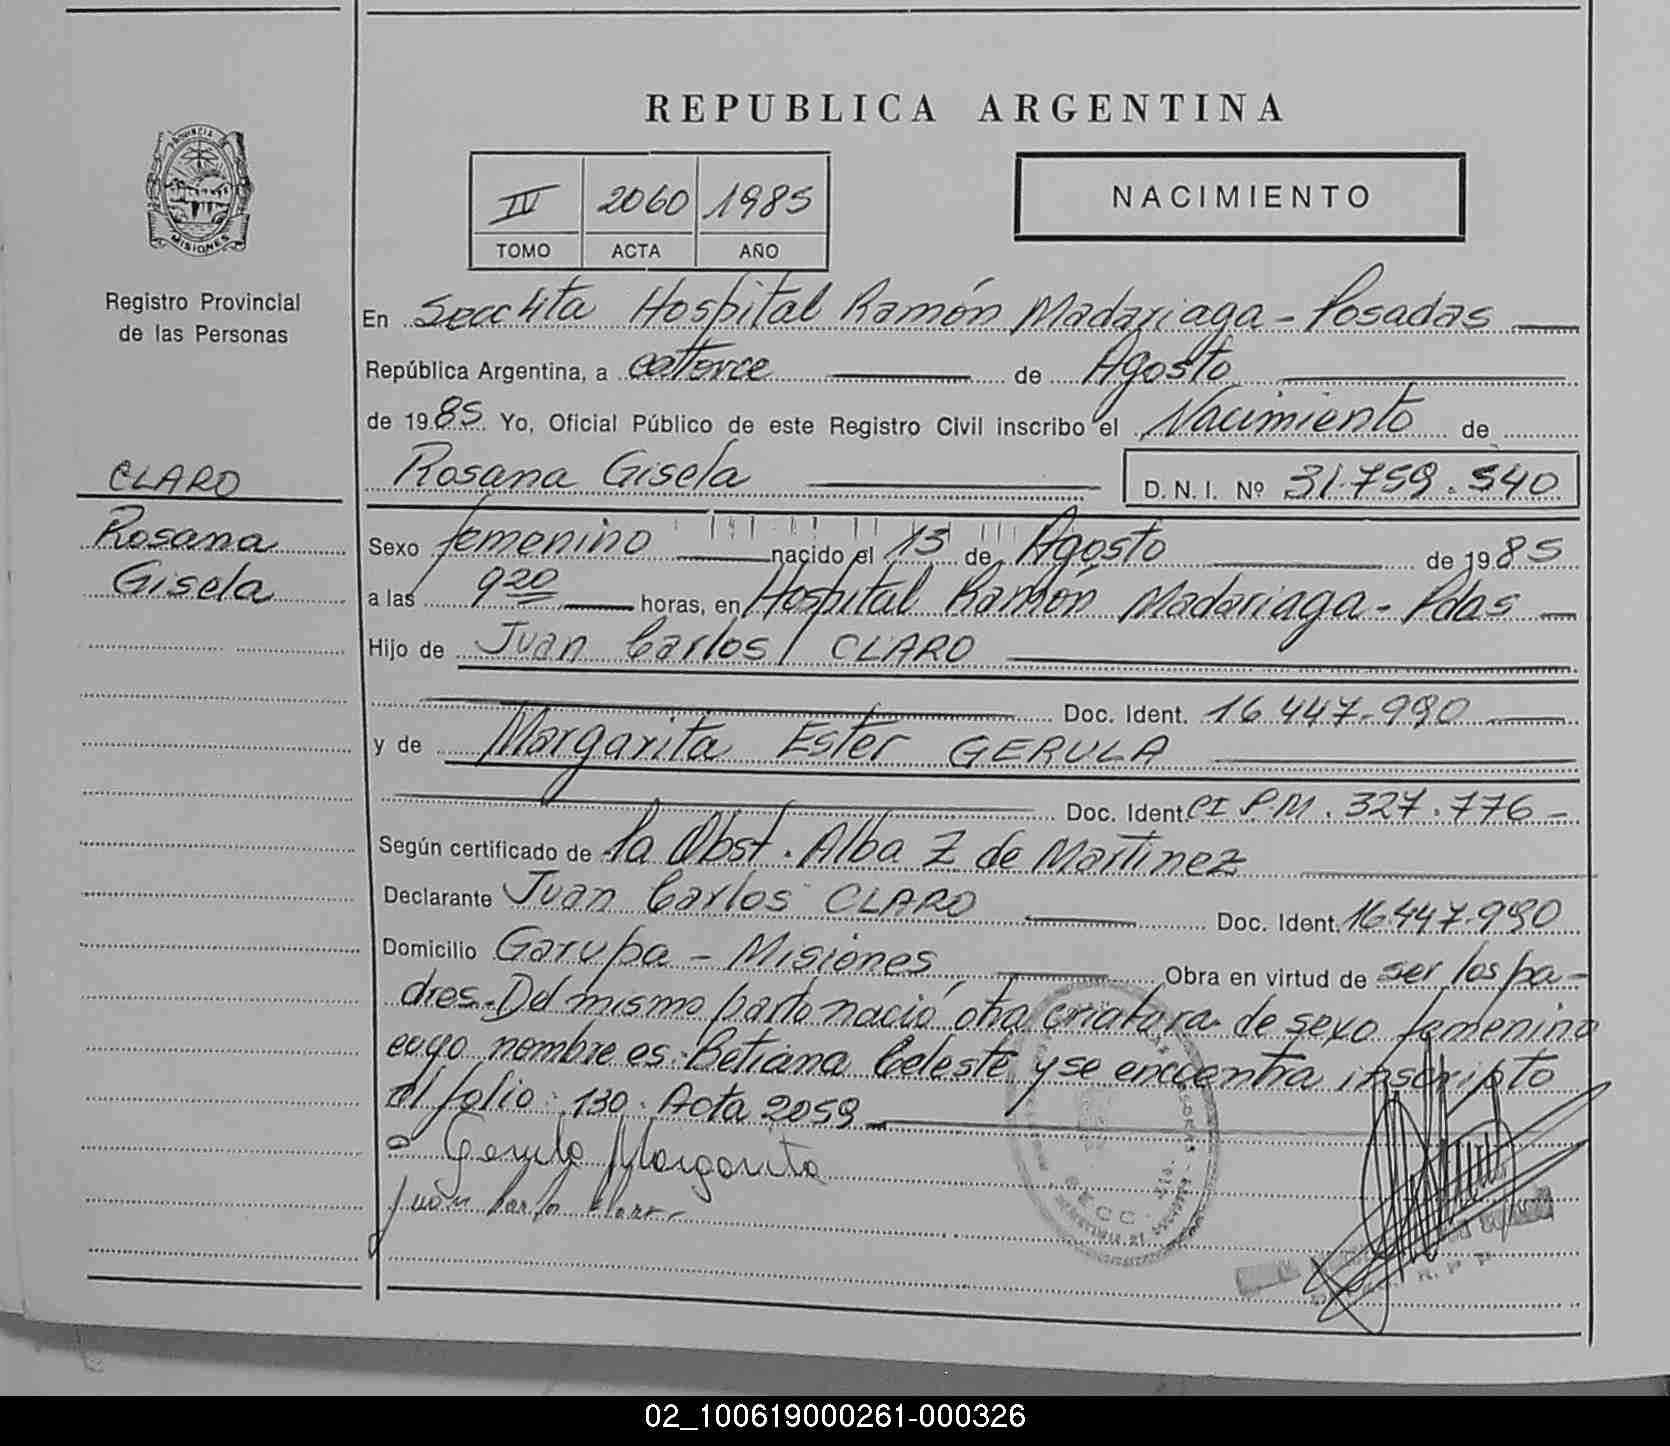 REPUBLICA ARGENTINA
PROVINCIA
MISIONES
Registro Provincial
de las Personas
III 2060 1985
TOMO ACTA AÑO
NACIMIENTO
En Secc 4ta Hospital Ramón Madariaga - Posadas
República Argentina, a catorce de Agosto
de 1985 Yo, Oficial Público de este Registro Civil inscribo el Nacimiento de
CLARO
Rosana
Gisela
Rosana Gisela D.N.I. Nº 31.759.540
Sexo femenino nacido el 13 de Agosto de 1985
a las 9 20 horas, en Hospital Ramón Madariaga - Pdas
Hijo de Juan Carlos CLARO
Doc. Ident. 16.447.990
y de Margarita Ester GERULA
Doc. Ident. CI P.M. 327.776 -
Según certificado de la Obst. Alba Z de Martinez
Declarante Juan Carlos CLARO Doc. Ident. 16.447.990
Domicilio Garupa - Misiones Obra en virtud de ser los pa-
dres. Del mismo parto nació otra criatura de sexo femenino
cuyo nombre es: Betiana Celeste y se encuentra inscripto
al folio: 130. Acta 2059
Gerula Margarita
Juan Carlos Claro
SECC.
02_100619000261-000326